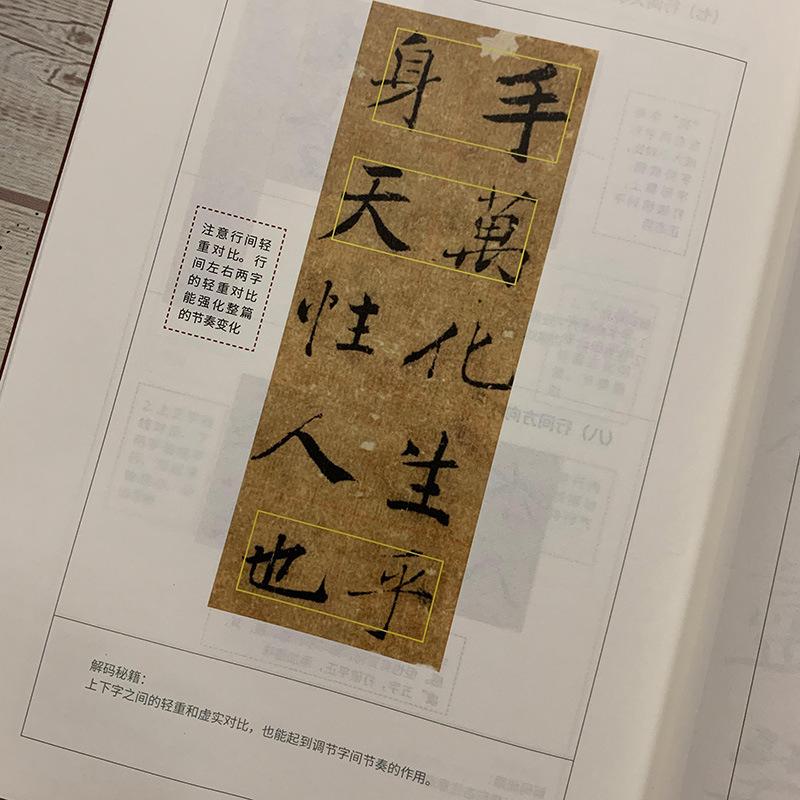 手萬化生乎
身天性人也
注意行间轻
重对比。行
间左右两字
的轻重对比
能强化整篇
的节奏变化
解码秘籍：
上下字之间的轻重和虚实对比，也能起到调节字间节奏的作用。